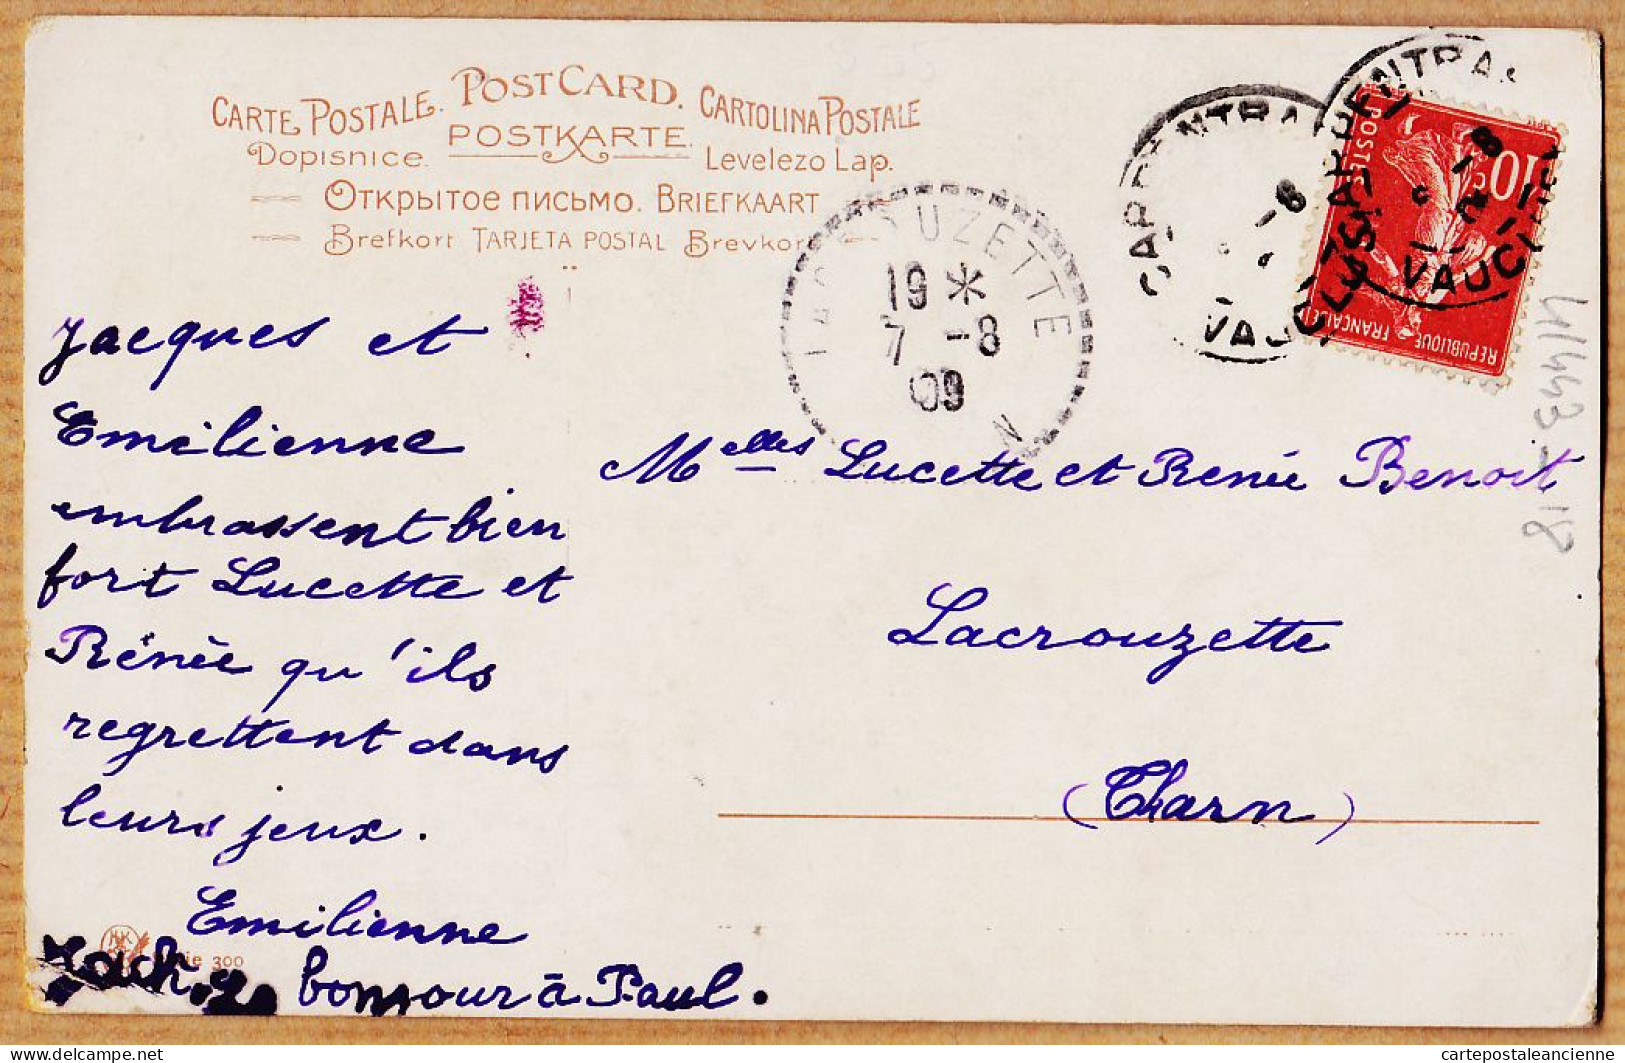 CARTE POSTALE. POST CARD. CARTOLINA POSTALE
POSTKARTE.
Dopisnice. Levelezo Lap.
Открытое письмо. BRIEFKAART
Brefkort TARJETA POSTAL Brevkort
CARPENTRAS
-8
VAUCLUSE
CARPENTRAS
-8
VAUCLUSE
POSTES
10
REPUBLIQUE FRANÇAISE
LACROUZETTE
19 *
7 -8
09
N
Jacques et
Emilienne
embrassent bien
fort Lucette et
Rénèe qu'ils
regrettent dans
leurs jeux.
Emilienne
bonjour à Paul.
Melles Lucette et Renée Benoit
Lacrouzette
(Tharn)
300
18
cartepostaleancienne
www.delcampe.net cartepostaleancienne